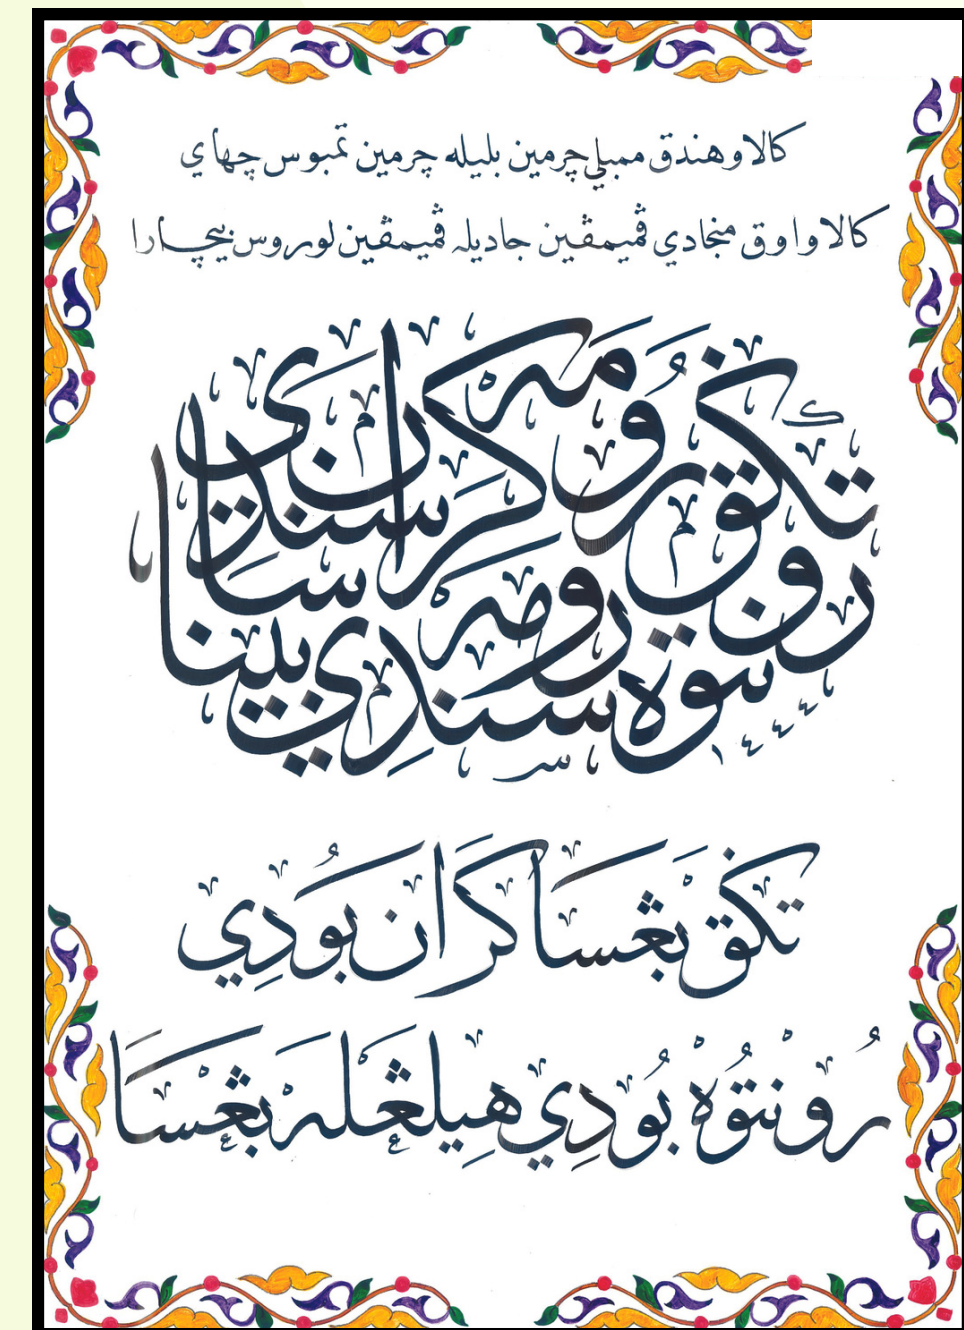 كالاو هندق ممبلي چرمين بليله چرمين تمبوس چهاي
كالاو اوق منجادي ڤميمڤين جاديله ڤميمڤين لوروس بيچارا
تكق رومه كران سندي
رونتوه سندي رومه بيناسا
١٤٤٤
تكق بڠسا كران بودي
رونتوه بودي هيلڠله بڠسا